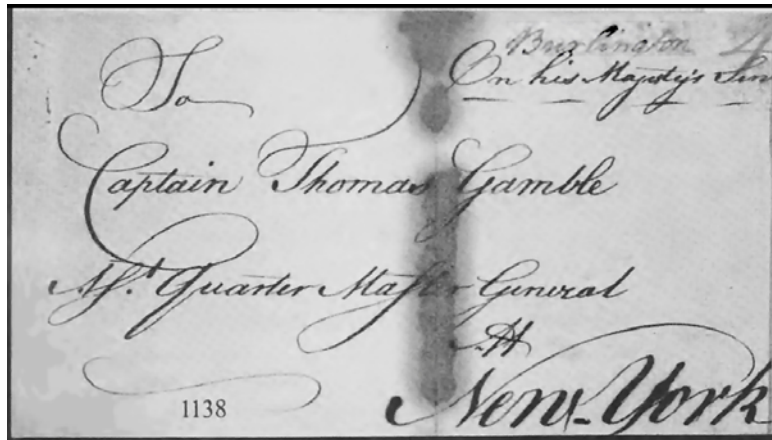 Burlington 4
To
On his Majesty's Serv
Captain Thomas Gamble
Asst. Quarter Master General
At
New-York
1138